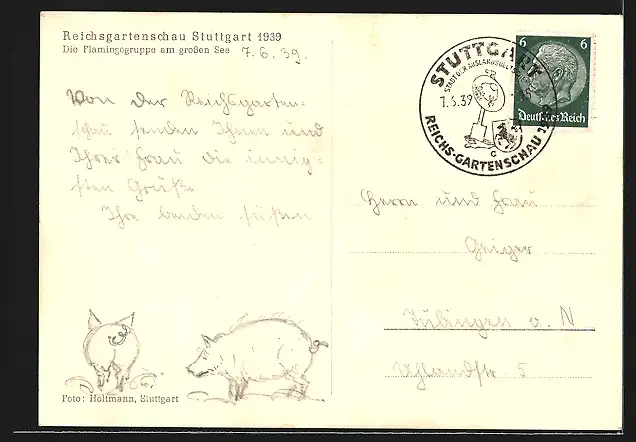 Reichsgartenschau Stuttgart 1939
Die Flamingogruppe am großen See 7.6.39.
Von der Reichsgarten-
schau senden Ihnen und
Ihrer Frau die innig-
sten Grüße
Ihre beiden süßen
Foto: Holtmann, Stuttgart
STUTTGART
STADT DER AUSLANDSDEUTSCHEN
7.6.39
c
REICHS-GARTENSCHAU
6 6
Deutsches Reich
Herrn und Frau
Geiger
Tübingen a. N
Uhlandstr. 5